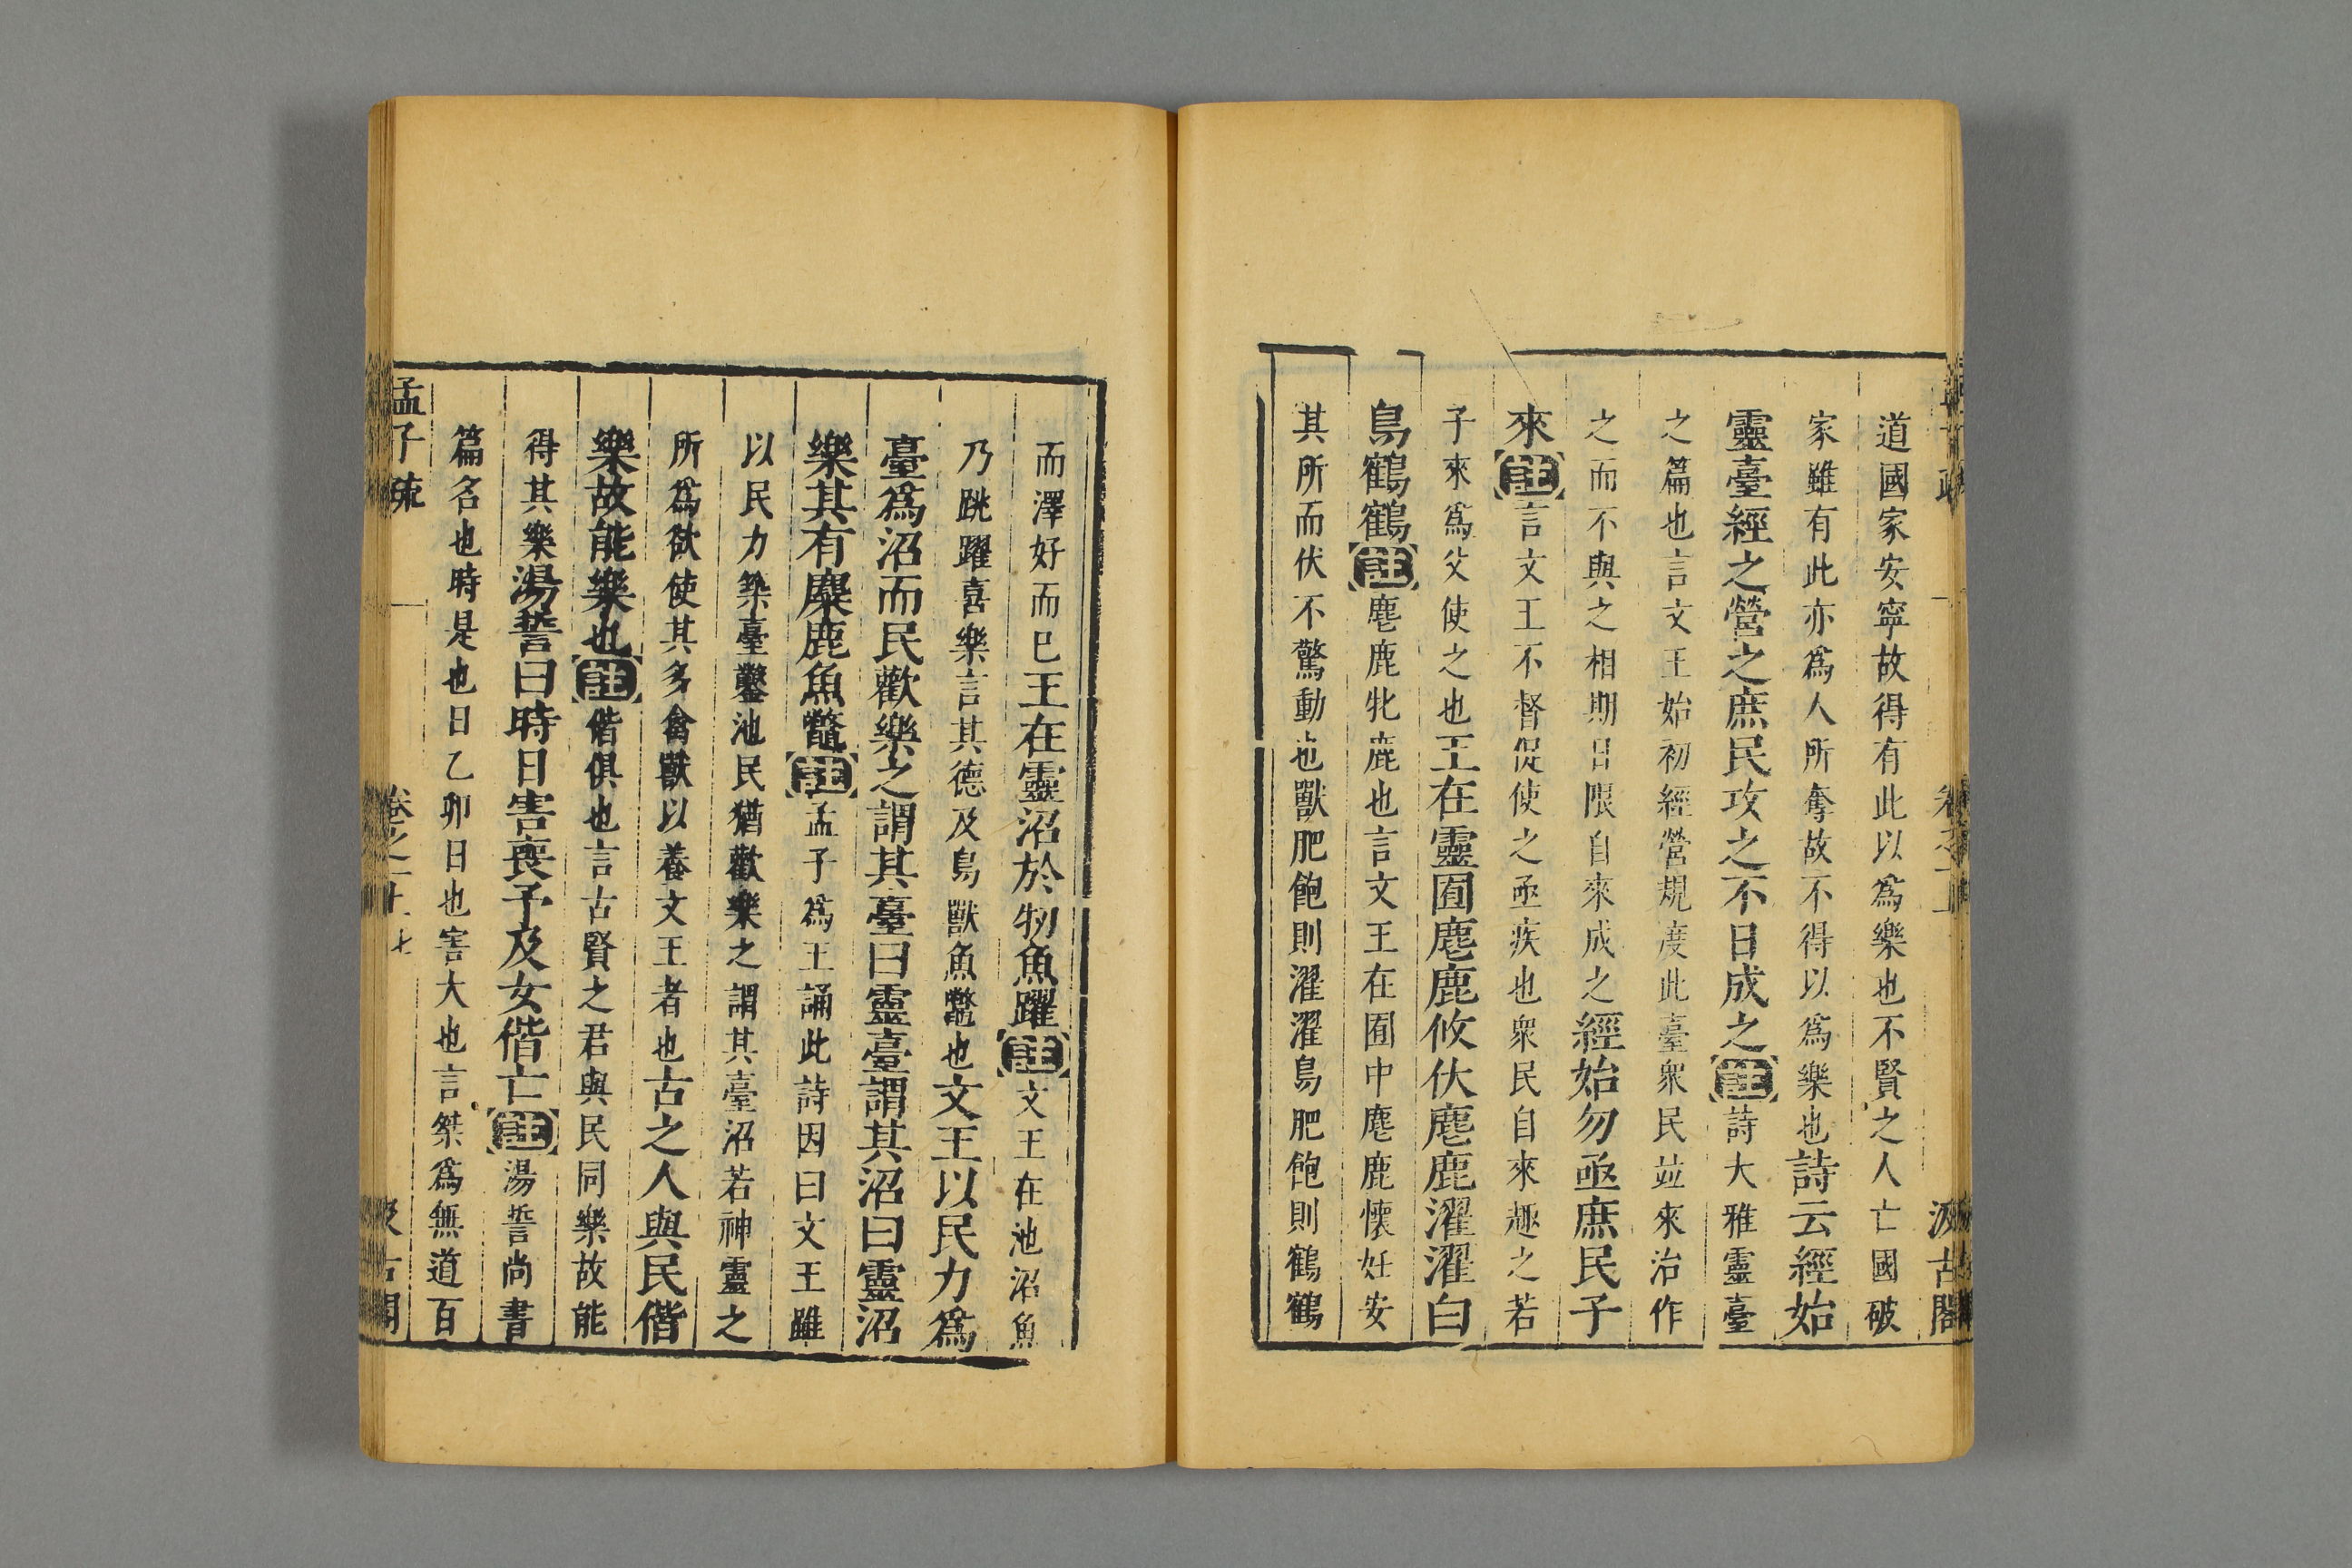 道國家安寧故得有此以爲樂也不賢之人亡國破
家雖有此亦爲人所奪故不得以爲樂也詩云經始
靈臺經之營之庶民攻之不日成之註詩大雅靈臺
之篇也言文王始初經營規度此臺衆民竝來治作
之而不與之相期日限自來成之經始勿亟庶民子
來註言文王不督促使之亟疾也衆民自來趣之若
子來爲父使之也王在靈囿麀鹿攸伏麀鹿濯濯白
鳥鶴鶴註麀鹿牝鹿也言文王在囿中麀鹿懷妊安
其所而伏不驚動也獸肥飽則濯濯鳥肥飽則鶴鶴
汲古閣
而澤好而巳王在靈沼於牣魚躍註文王在池沼魚
乃跳躍喜樂言其德及鳥獸魚鼈也文王以民力爲
臺爲沼而民歡樂之謂其臺曰靈臺謂其沼曰靈沼
樂其有麋鹿魚鼈註孟子爲王誦此詩因曰文王雖
以民力築臺鑿池民猶歡樂之謂其臺沼若神靈之
所爲欲使其多禽獸以養文王者也古之人與民偕
樂故能樂也註偕俱也言古賢之君與民同樂故能
得其樂湯誓曰時日害喪予及女偕亡註湯誓尚書
篇名也時是也日乙卯日也害大也言桀爲無道百
孟子疏 卷之一上 七